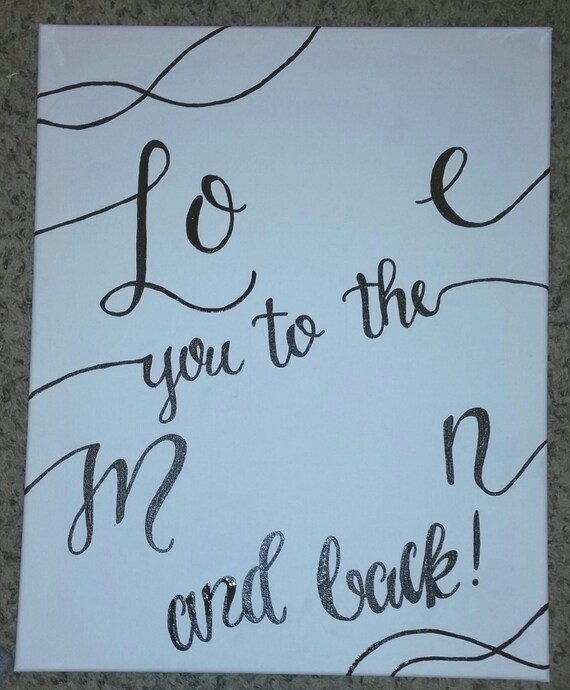 Lo e
you to the
M n
and back!